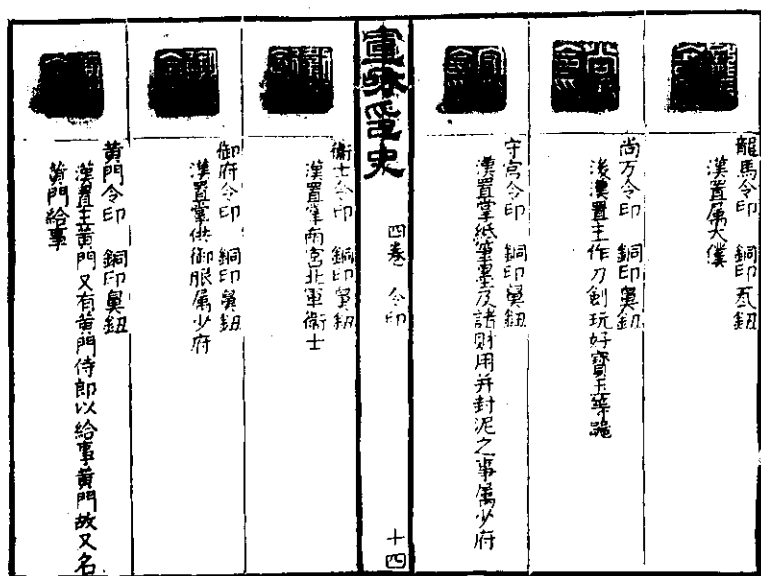 龍馬令印　銅印瓦鈕
漢置属大僕
尚方令印　銅印鼻鈕
後漢置主作刀劍玩好寶玉等
守宮令印　銅印鼻鈕
漢置掌紙筆墨及諸財用并封泥之事属少府
印史
四卷　令印
十四
衞士令印　銅印鼻鈕
漢置掌南宮北軍衞士
御府令印　銅印鼻鈕
漢置掌供御服属少府
黄門令印　銅印鼻鈕
漢置主黄門又有黄門侍郎以給事黄門故又名
黄門給事